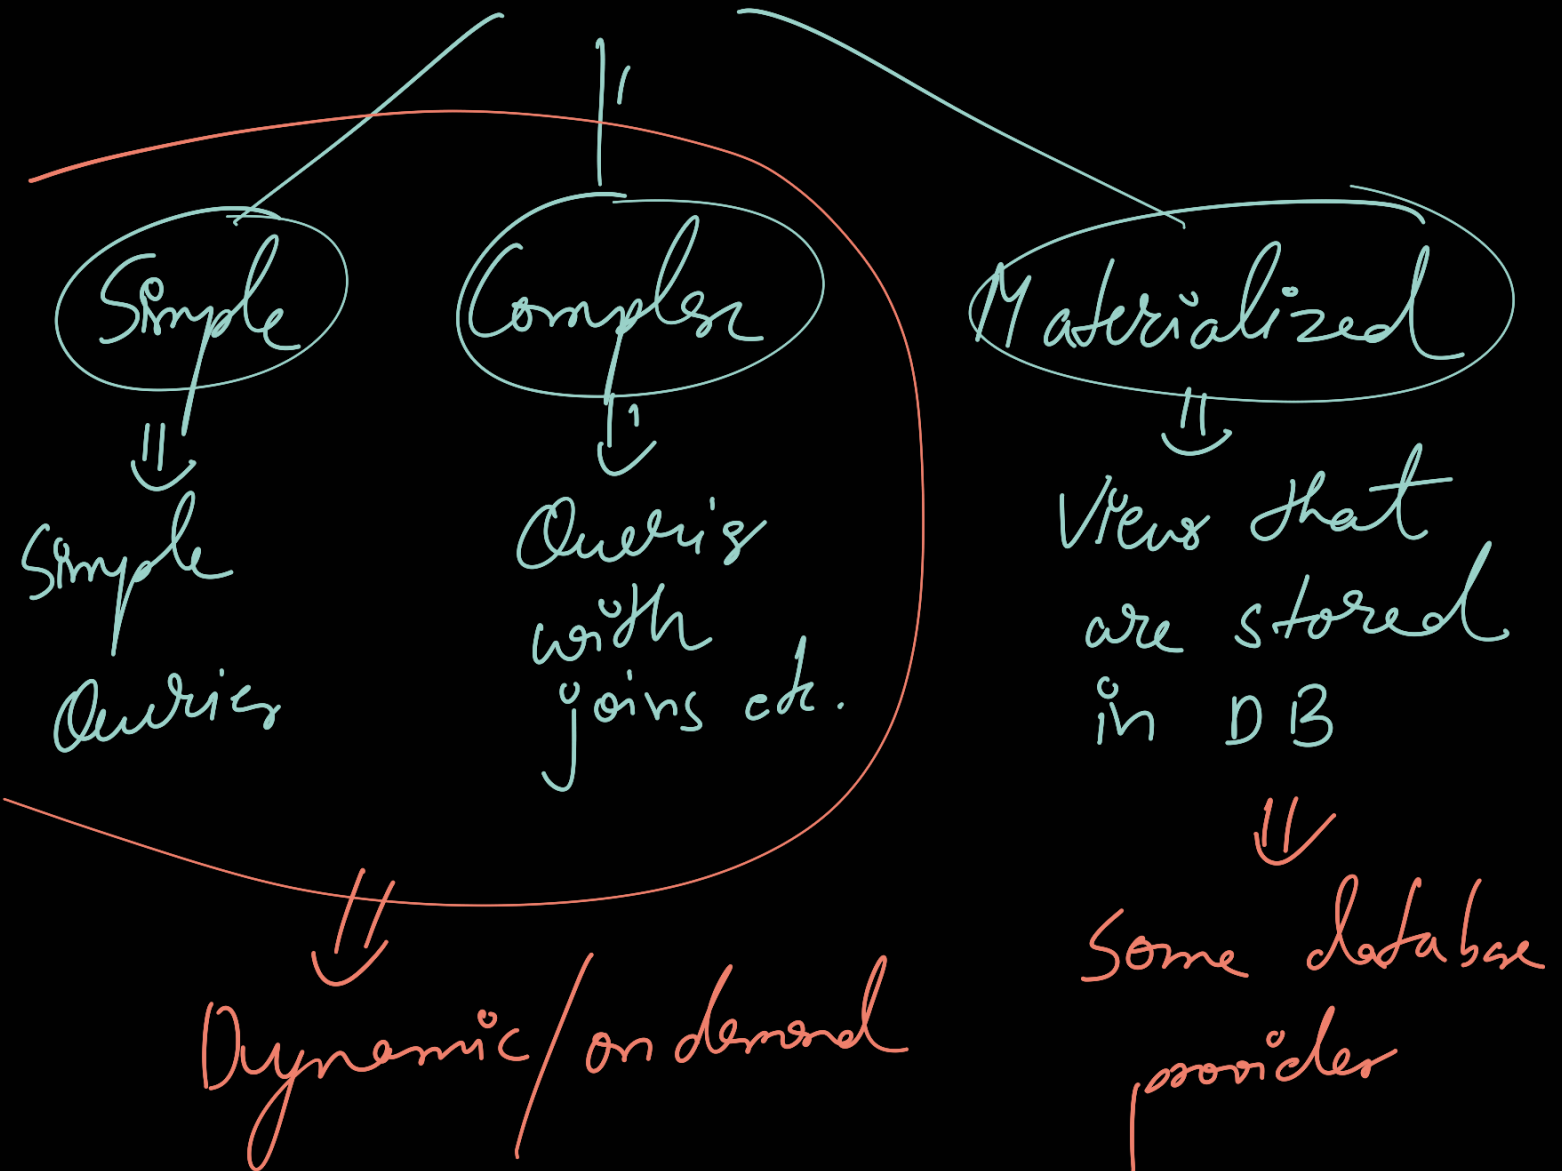 Simple
Complex
Materialized
Simple
Queries
Queris
with
joins etc.
Views that
are stored
in DB
Dynamic/on demand
Some database
provider